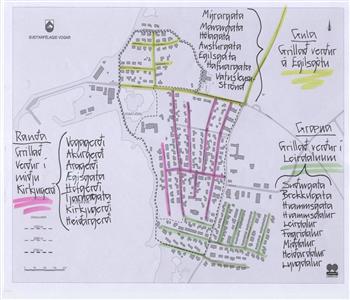 SVEITARFÉLAGIÐ VOGAR
Mýrargata
Marargata
Hólagata
Austurgata
Egilsgata
Hafnargata
Vatnsleysu
Strönd
Gula
Grillað verður
á Egilsgötu
Rauða
Grillað
verður í
miðju
Kirkjugerði
Vogagerði
Akurgerði
Aragerði
Ægisgata
Hofgerði
Tjarnargata
Kirkjugerði
Heiðargerði
Græna
Grillað verður í
Leirdalnum
Suðurgata
Brekkugata
Hvammsgata
Hvammsdalur
Leirdalur
Fagridalur
Miðdalur
Heiðardalur
Lyngdalur